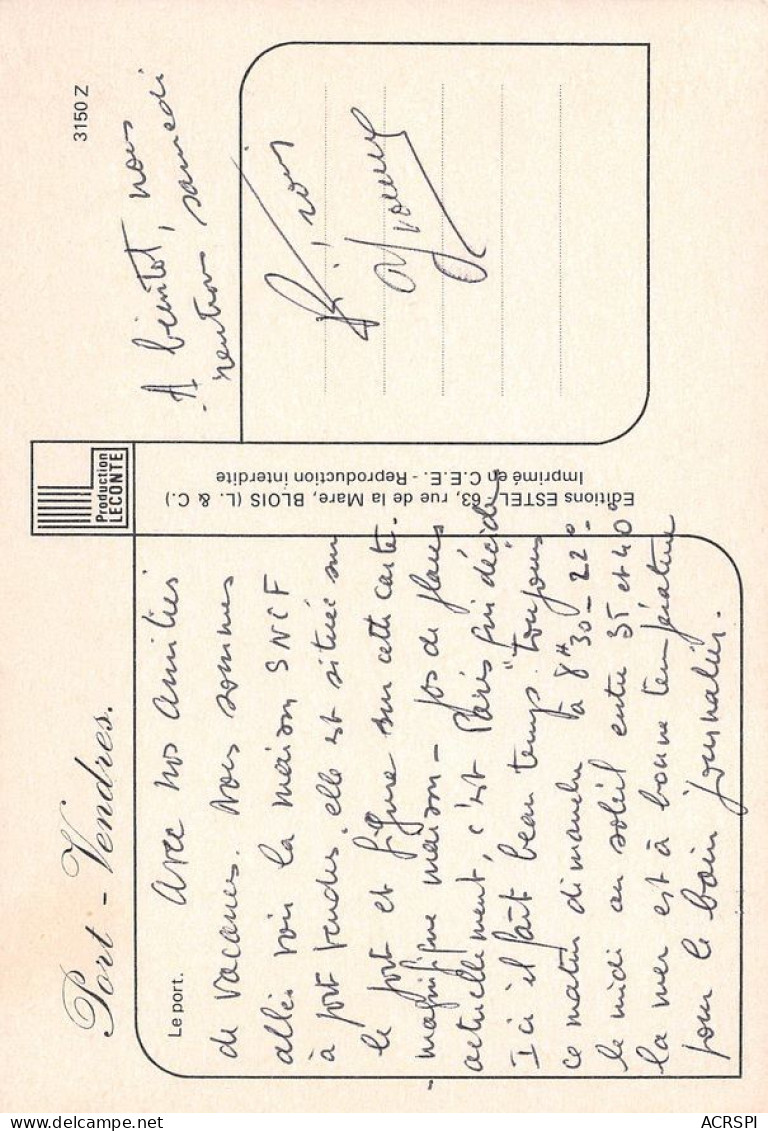 Port-Vendres.
Le port.
Avec nos amitiés
de vacances. Nous sommes
allés voir la maison SNCF
à port vendres, elle est située sur
le port et figure sur cette carte.
- magnifique maison - pas de place
actuellement, c'est Paris qui décide
Ici il fait beau temps. Toujours
ce matin dimanche à 8H30 - 22°.
le midi au soleil entre 35 et 40°
la mer est à bonne température
pour le bain journalier.
Production
LECONTE
Editions ESTEL - 63, rue de la Mare, BLOIS (L. & C.)
Imprimé en C.E.E. - Reproduction interdite
3150 Z
A bientôt, nous
rentrons samedi
Yvonne
ACRSPI